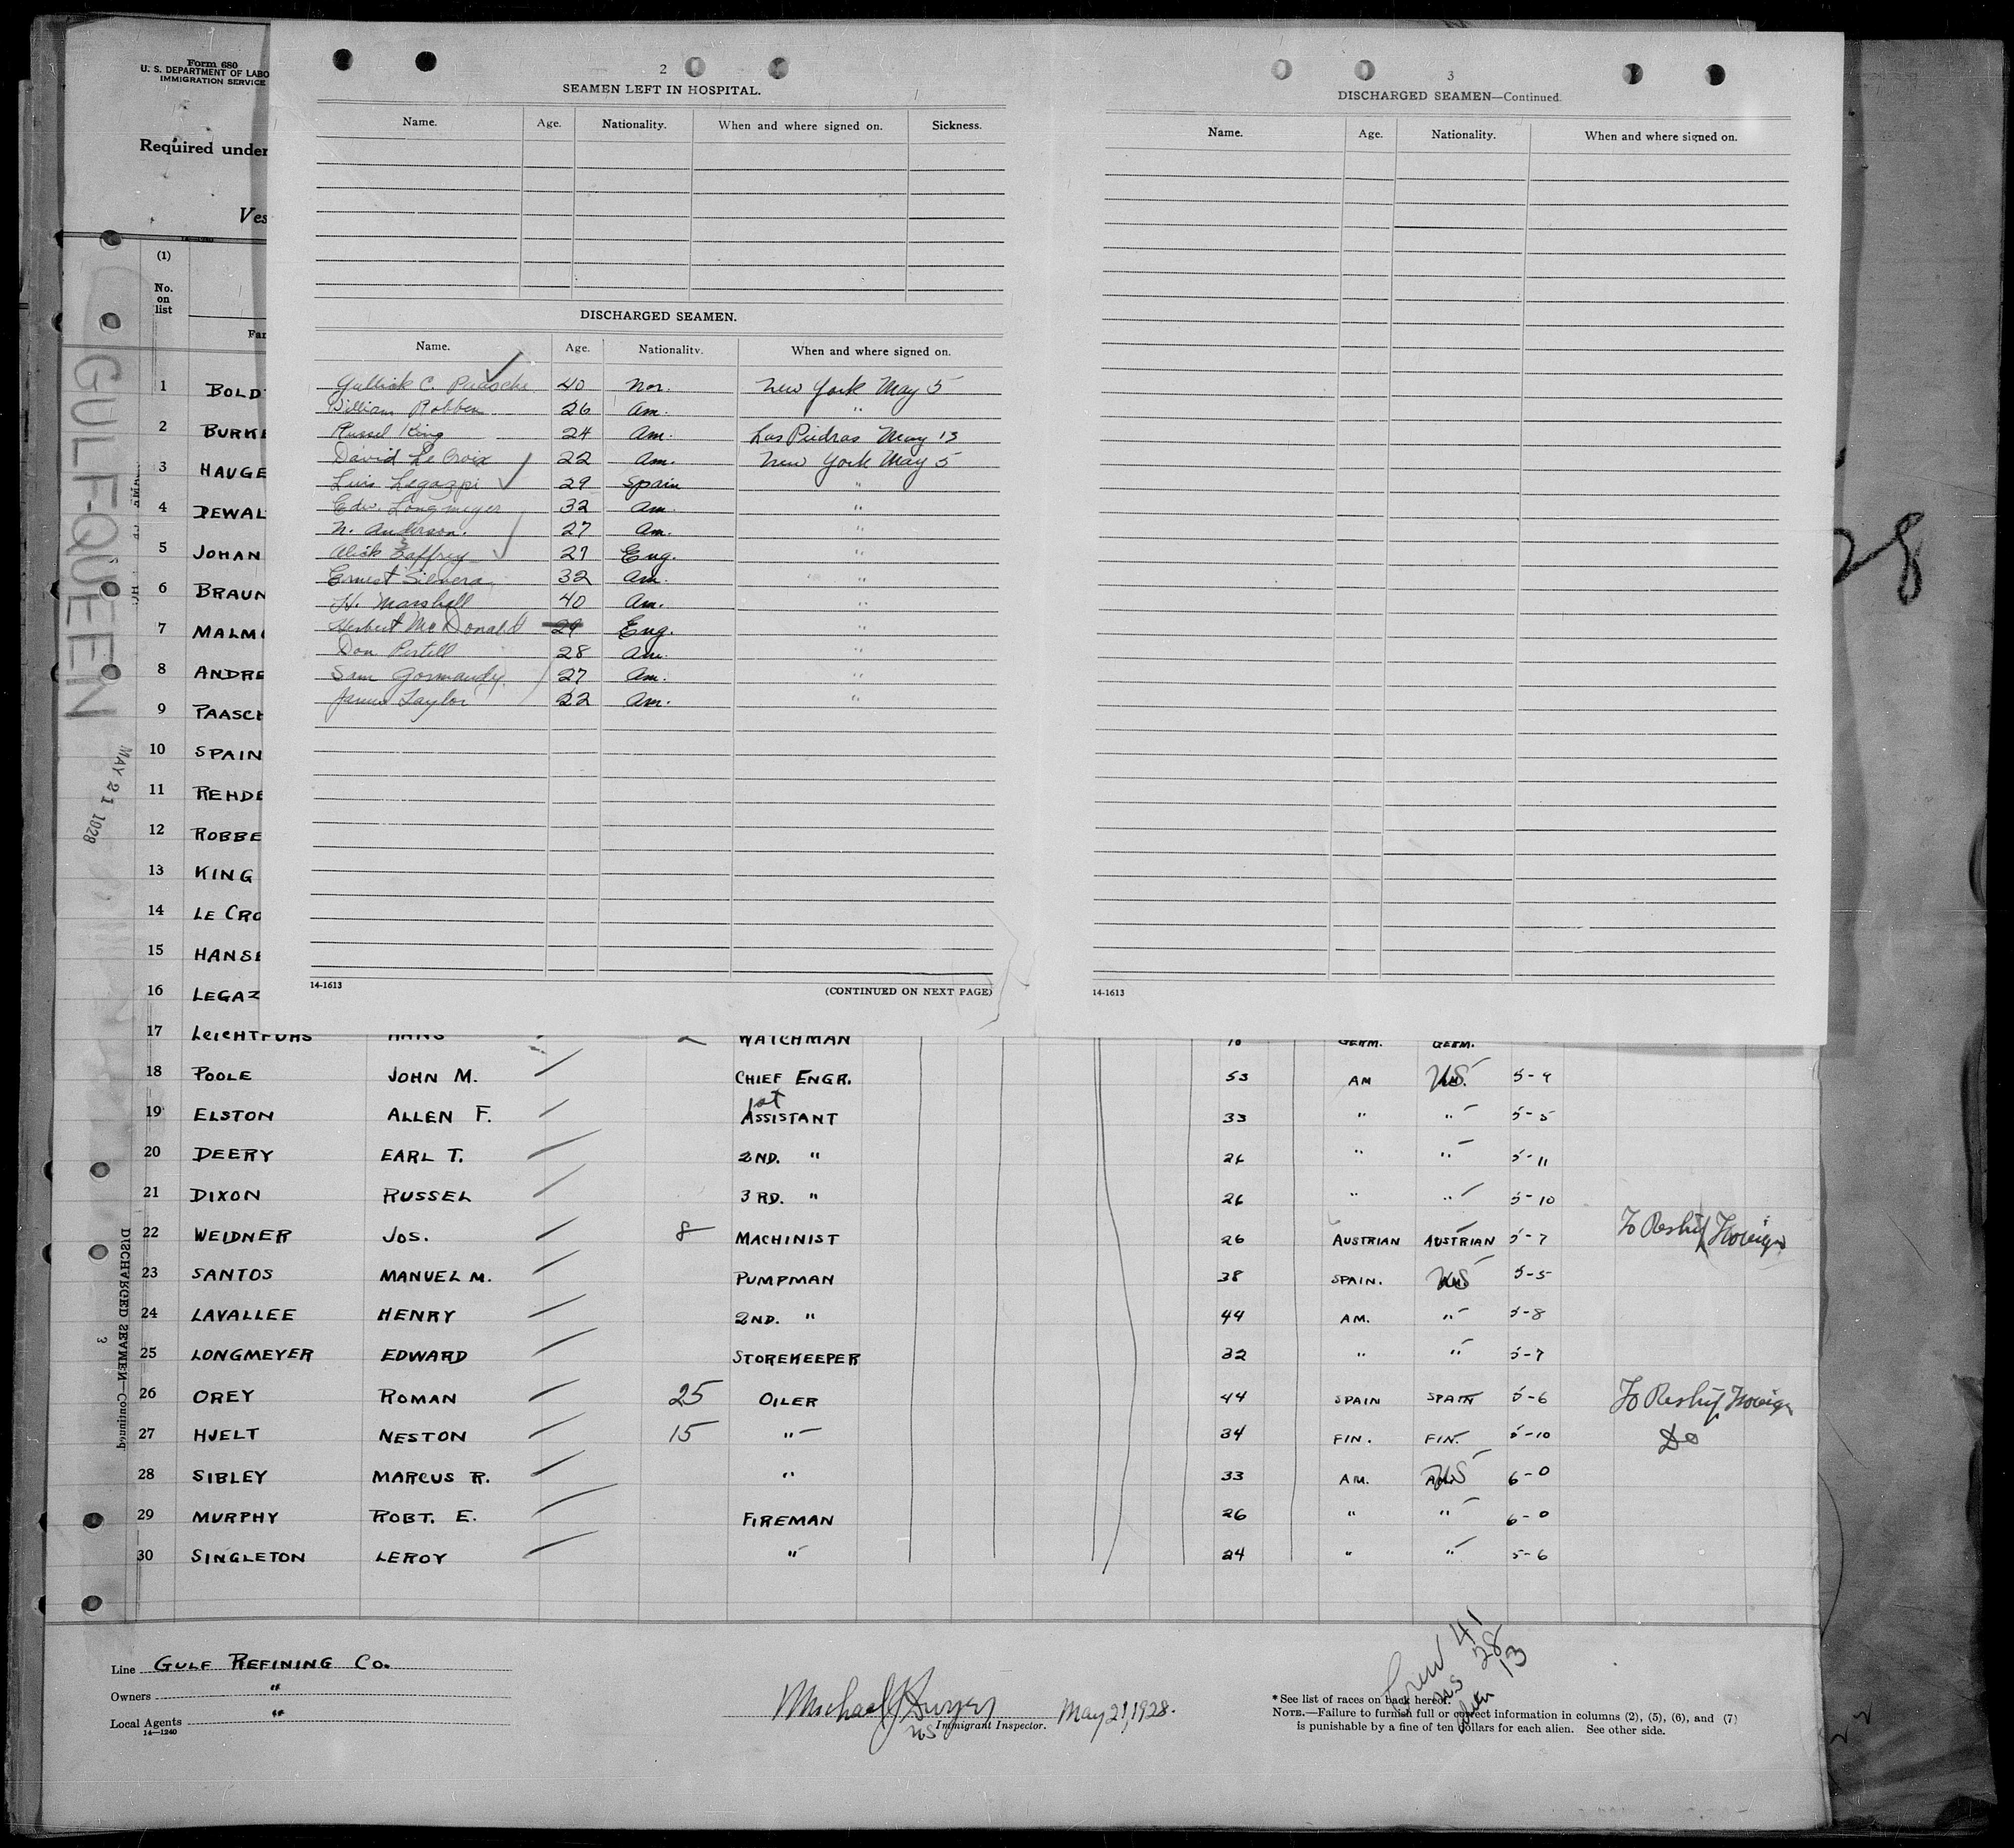 Form 680
U. S. DEPARTMENT OF LABO
IMMIGRATION SERVICE
Required under
Ves
(1)
No. on list
Far
GULF-QUEEN
MAY 21 1928
2
SEAMEN LEFT IN HOSPITAL.
Name. Age. Nationality. When and where signed on. Sickness.
DISCHARGED SEAMEN.
Name. Age. Nationality. When and where signed on.
Gullick C. Paasche 40 Nor. New York May 5
William Robben 26 Am. "
Russel King 24 Am. Las Piedras May 13
David Le Croix 22 Am. New York May 5
Luis Legazpi 29 Spain "
Edw. Longmeyer 32 Am. "
N. Anderson. 27 Am. "
Alick Gaffrey 29 Eng. "
Ernest Silvera 32 Am. "
H. Marshall 40 Am. "
Herbert McDonald 29 Eng. "
Don Pertell 28 Am. "
Sam Gormandy 27 Am. "
James Taylor 22 Am. "
14-1613 (CONTINUED ON NEXT PAGE)
3
DISCHARGED SEAMEN—Continued.
Name. Age. Nationality. When and where signed on.
14-1613
28
1 BOLD
2 BURKE
3 HAUGE
4 DEWAL
5 JOHAN
6 BRAUN
7 MALM
8 ANDRE
9 PAASCH
10 SPAIN
11 REHDE
12 ROBBE
13 KING
14 LE CRO
15 HANSE
16 LEGAZ
17 LEICHTFUHS HANS WATCHMAN GERM. GERM.
18 POOLE JOHN M. CHIEF ENGR. 53 AM US 5-9
19 ELSTON ALLEN F. 1st ASSISTANT 33 " " 5-5
20 DEERY EARL T. 2ND. " 26 " " 5-11
21 DIXON RUSSEL 3RD. " 26 " " 5-10
22 WEIDNER JOS. 8 MACHINIST 26 AUSTRIAN AUSTRIAN 5-7 To Reship Foreign
23 SANTOS MANUEL M. PUMPMAN 38 SPAIN. US 5-5
24 LAVALLEE HENRY 2ND. " 44 AM. " 5-8
25 LONGMEYER EDWARD STOREKEEPER 32 " " 5-7
26 OREY ROMAN 25 OILER 44 SPAIN SPAIN 5-6 To Reship Foreign
27 HJELT NESTON 15 " 34 FIN. FIN. 5-10 Do
28 SIBLEY MARCUS R. " 33 AM. US 6-0
29 MURPHY ROBT. E. FIREMAN 26 " " 6-0
30 SINGLETON LEROY " 24 " " 5-6
DISCHARGED SEAMEN—Continued.
3
Line GULF REFINING CO.
Owners "
Local Agents "
14—1240
Michael J Dwyer May 21, 1928.
US Immigrant Inspector.
Crew 41
US 28
Alien 13
* See list of races on back hereof.
NOTE.—Failure to furnish full or correct information in columns (2), (5), (6), and (7)
is punishable by a fine of ten dollars for each alien. See other side.